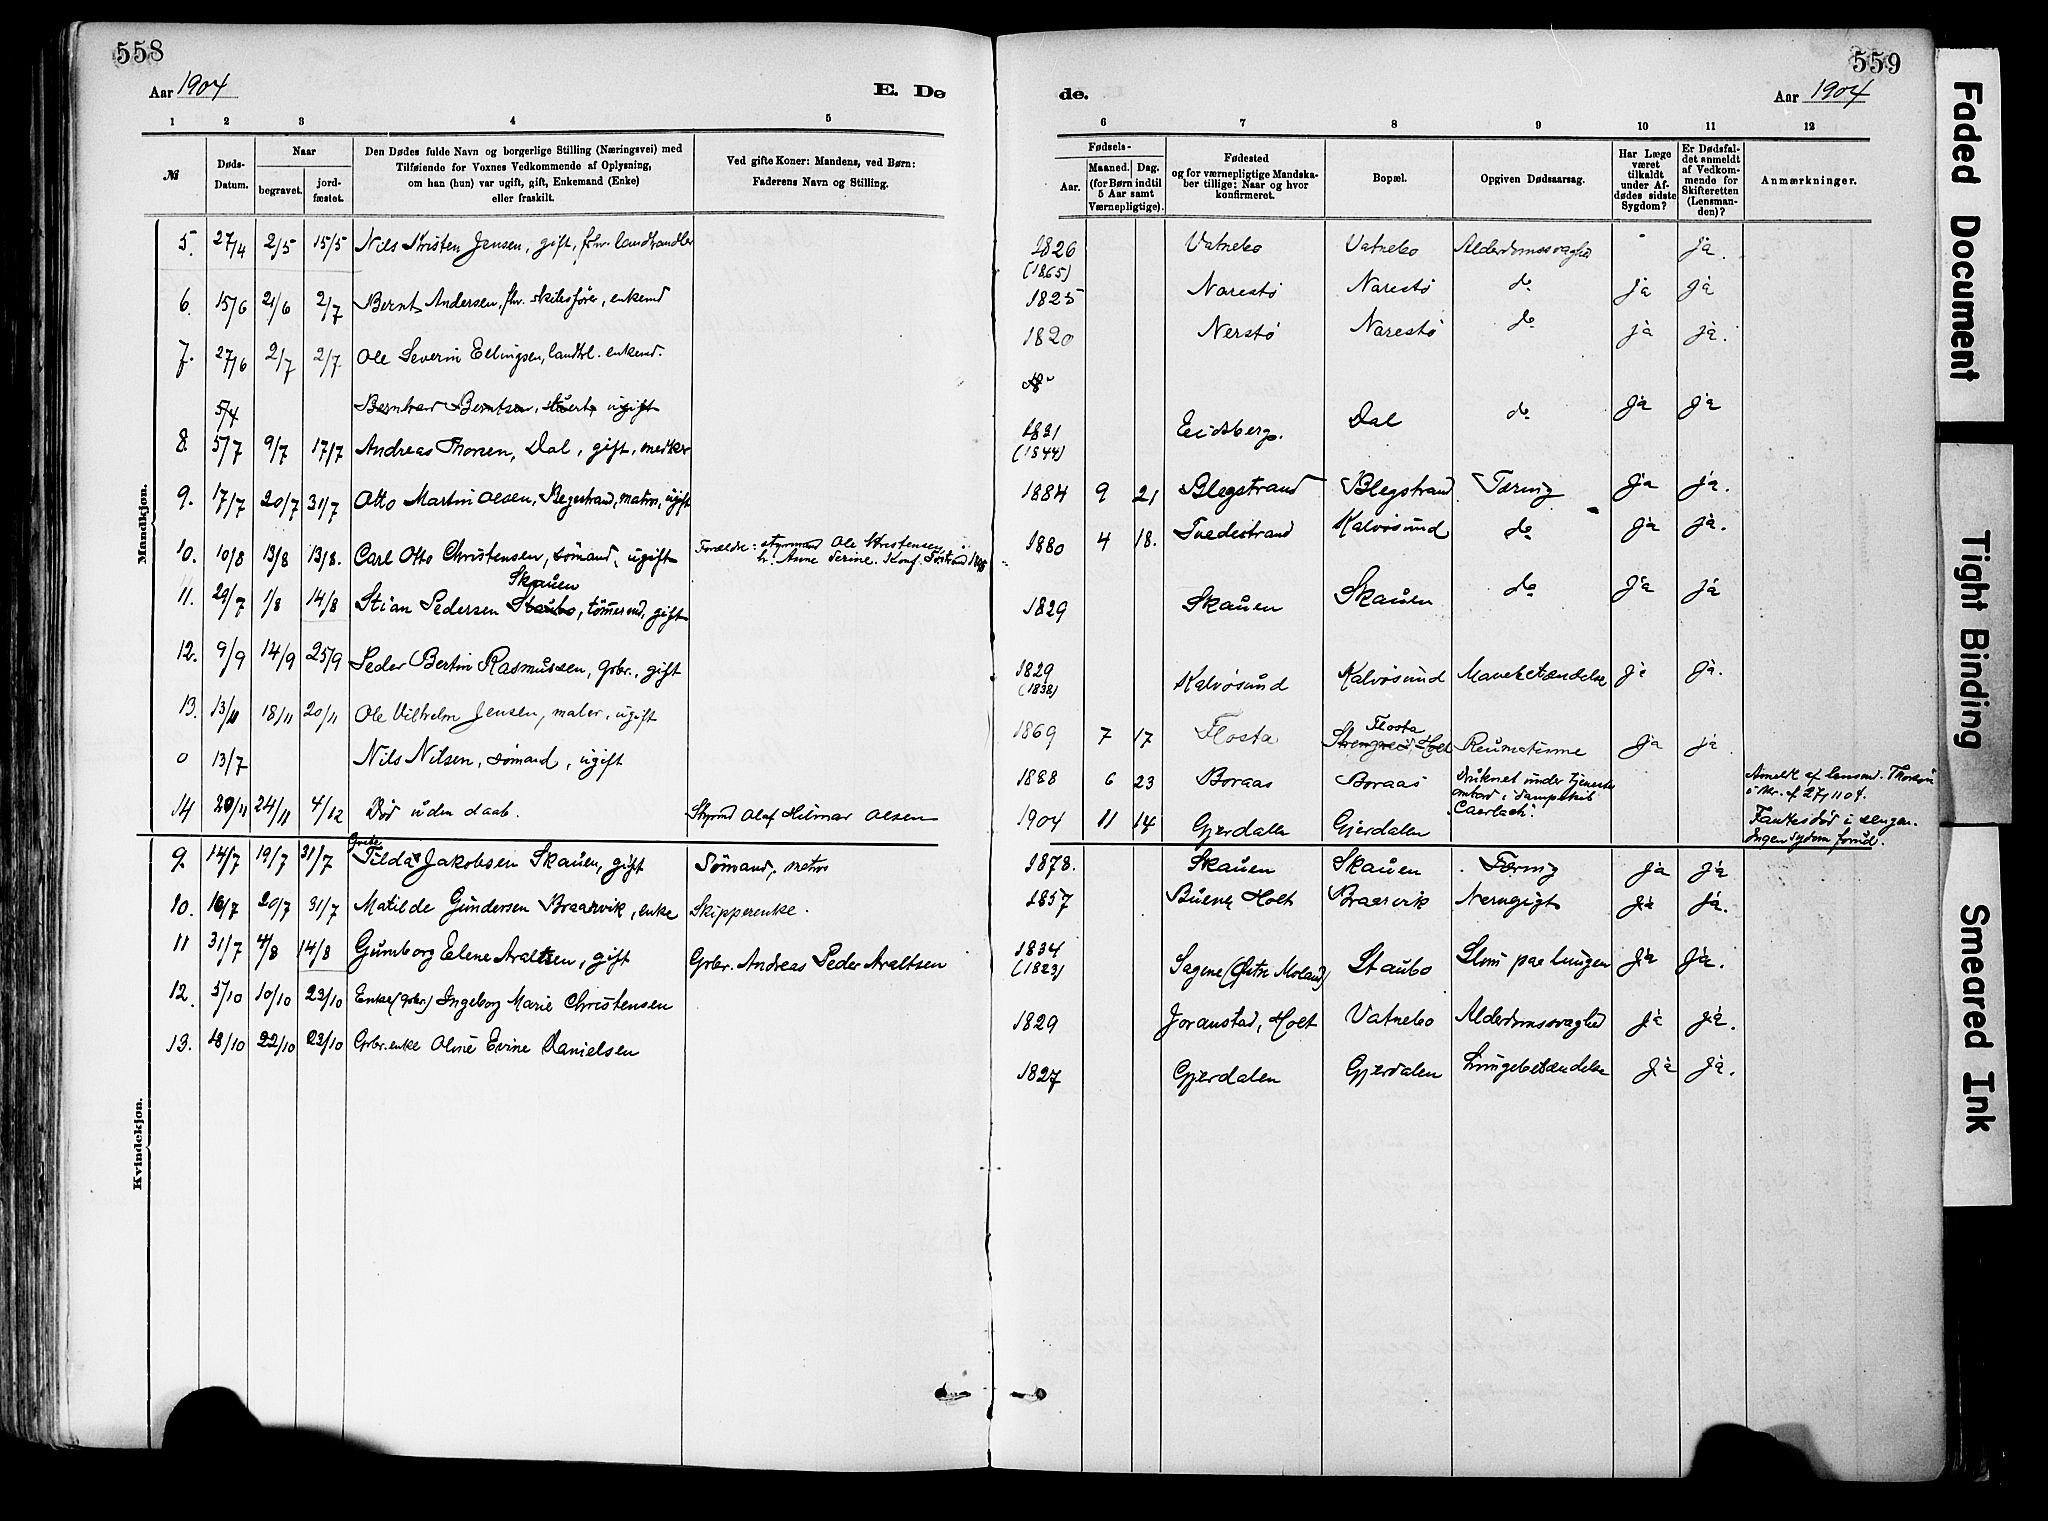 558
Aar 1904
E. Dø
1 2 3 4 5
№
Døds-Datum.
Naar
begravet.
jord-fæstet.
Den Dødes fulde Navn og borgerlige Stilling (Næringsvei) med
Tilføiende for Voxnes Vedkommende af Oplysning,
om han (hun) var ugift, gift, Enkemand (Enke)
eller fraskilt.
Ved gifte Koner: Mandens, ved Børn:
Faderens Navn og Stilling.
Mandkjøn.
5. 27/4 2/5 15/5 Nils Kristen Jensen, gift, fhv. landhandler
6. 15/6 21/6 2/7 Bernt Andersen, fhv. skibsfører, enkemd
7. 27/6 2/7 2/7 Ole Severin Ellingsen, enkemd.
5/4 Bernhard Berntsen, ugift
8. 5/7 9/7 17/7 Andreas Thorsen, Dal, gift,
9. 17/7 20/7 31/7 Otto Martin Olsen, matros, ugift
10. 10/8 13/8 13/8. Carl Otto Christensen, sømand, ugift Forældre: styrmand Ole Kristensen
Skauen
11. 29/7 1/8 14/8 Stian Pedersen Staubo, tømmermd, gift
12. 9/9 14/9 25/9 Peder Bertin Rasmussen, gbr., gift
13. 13/11 18/11 20/11 Ole Vilhelm Jensen, maler, ugift
0 13/7 Nils Nilsen, sømand, ugift
14 20/11 24/11 4/12 Død uden daab. Styrmd Olaf Hilmar Olsen
Kvindekjøn.
9. 14/7 19/7 31/7 Tilda Jakobsen Skauen, gift Sømand, matros
10. 16/7 20/7 31/7 Matilde Gundersen Braarvik, enke Skipperenke.
11 31/7 4/8 14/8 Gumborg Elene Araltsen, gift Gbr. Andreas Peder Araltsen
12. 5/10 10/10 23/10 Enke (gbr.) Ingeborg Marie Christensen
13. 18/10 22/10 23/10 Gbr. enke Oline Evine Danielsen
559
de.
Aar 1904
6 7 8 9 10 11 12
Fødsels-
Aar.
Maaned. Dag.
(for Børn indtil
5 Aar samt
Værnepligtige).
Fødested
og for værnepligtige Mandska-
ber tillige: Naar og hvor
konfirmeret.
Bopæl.
Opgiven Dødsaarsag.
Har Læge
været
tilkaldt
under Af-
dødes sidste
Sygdom?
Er Dødsfal-
det anmeldt
af Vedkom-
mende for
Skifteretten
(Lensman-
den)?
Anmærkninger.
1826 Vatnebo Vatnebo Alderdomssvaghed - ja.
(1865)
1825 Narestø Narestø do ja ja
1820 Nerstø Narestø do ja ja.
1821 Eidsberg. Dal do ja ja
(1844)
1884 9 21 Blegstrand Blegstrand Tæring ja ja.
1880 4 18. Tvedestrand Kalvøsund do ja ja.
1829 Skauen Skauen do ja ja
1829 Kalvøsund Kalvøsund Mavebetændelse ja ja.
(1838)
Flosta
1869 7 17 Flosta Holt Reumatisme ja ja
1888 6 23 Boraas Boraas Druknet under tjeneste
ombord i dampskib
Caerloch.
Anmeldt af lensmd. Thorsen
1904 11 14 Gjerdalen Gjerdalen
Fantes død i sengen.
Ingen sygdom forud.
1878. Skauen Skauen Tæring ja ja
1857 Buene Holt Braarvik Nervegigt ja ja.
1834 Sagene (Østre Moland) Staubo Slim paa lungen ja ja.
(1823)
1829 Joranstad, Holt Vatnebo Alderdomssvaghed ja ja.
1827 Gjerdalen Gjerdalen Lungebetændelse ja ja.
Faded Document
Tight Binding
Smeared Ink